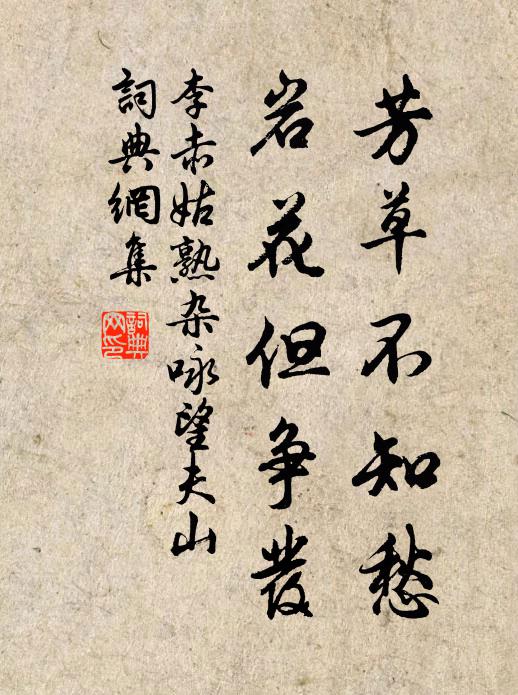 芳草不知愁
岩花但争發
李赤姑熟杂咏望夫山
詞典網集
詞典網印